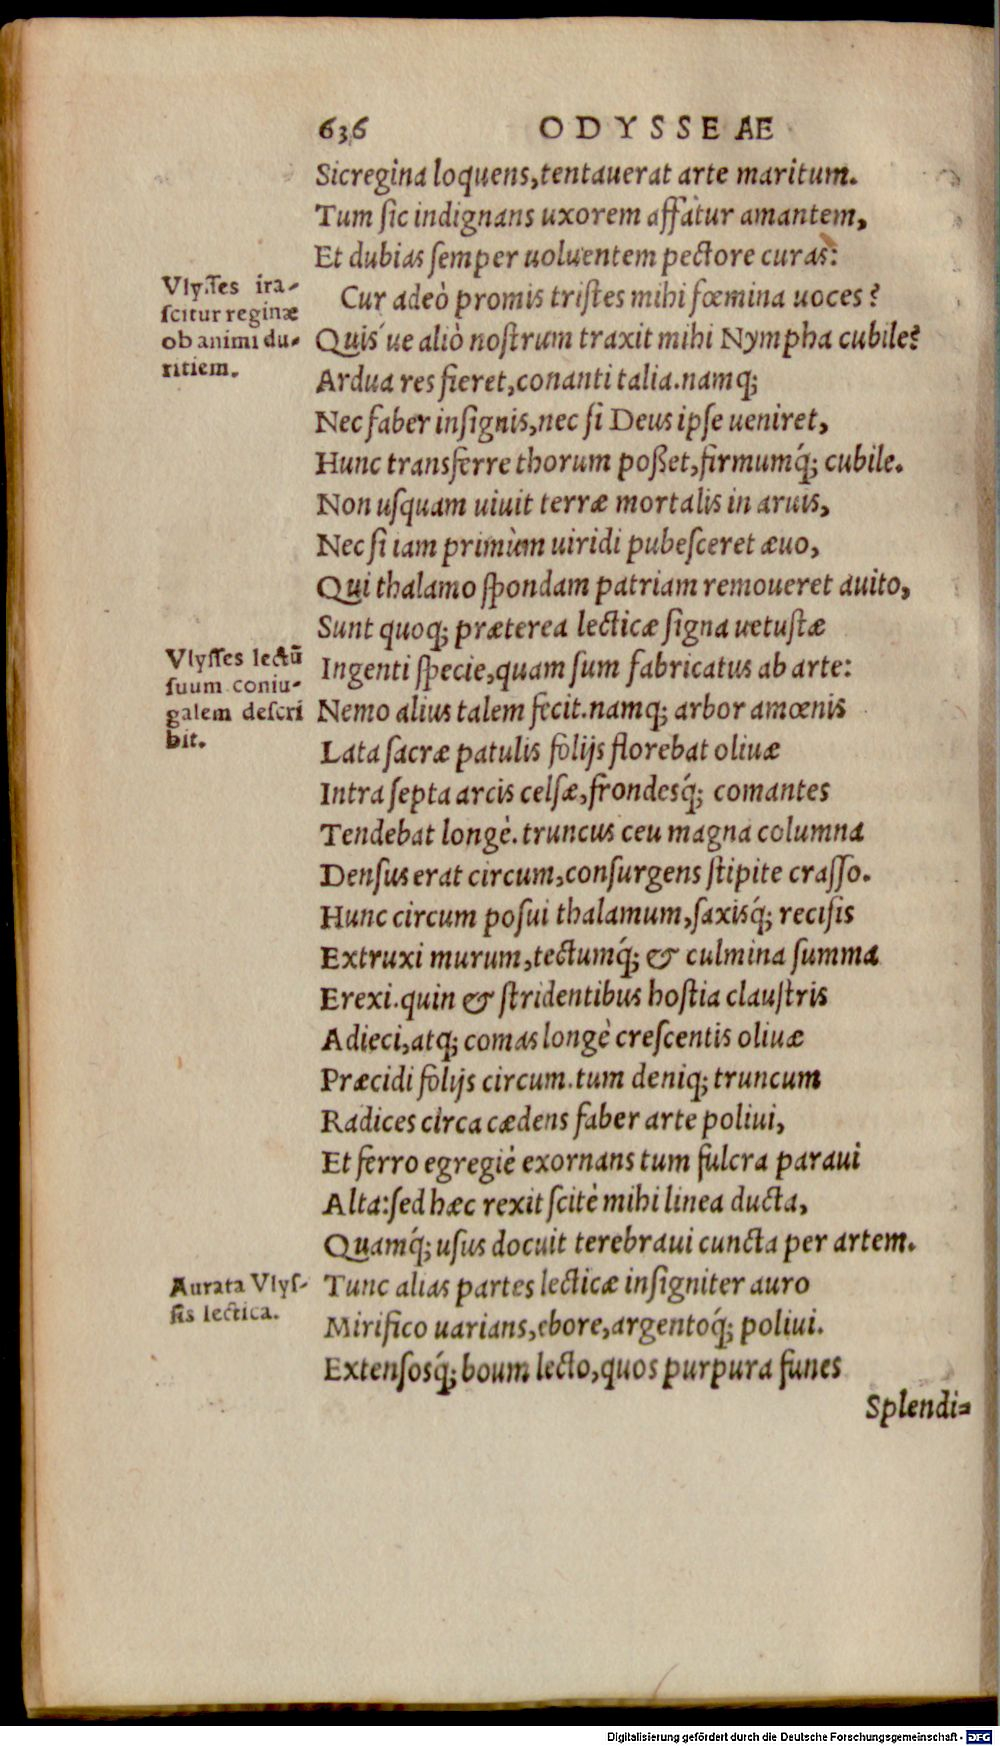 636 ODYSSEAE
Sic regina loquens, tentauerat arte maritum.
Tum sic indignans uxorem affatur amantem,
Et dubias semper uoluentem pectore curas:
Vlysses ira-
scitur reginæ
ob animi du-
ritiem.
Cur adeò promis tristes mihi fœmina uoces?
Quis´ue aliò nostrum traxit mihi Nympha cubile?
Ardua res fieret, conanti talia. namq;
Nec faber insignis, nec si Deus ipse ueniret,
Hunc transferre thorum poßet, firmumq́; cubile.
Non usquam uiuit terræ mortalis in aruis,
Nec si iam primùm uiridi pubesceret æuo,
Qui thalamo spondam patriam remoueret auito,
Sunt quoq; præterea lecticæ signa uetustæ
Vlysses lectū
suum coniu-
galem descri
bit.
Ingenti specie, quam sum fabricatus ab arte:
Nemo alius talem fecit. namq; arbor amœnis
Lata sacræ patulis folijs florebat oliuæ
Intra septa arcis celsæ, frondesq́; comantes
Tendebat longè. truncus ceu magna columna
Densus erat circum, consurgens stipite crasso.
Hunc circum posui thalamum, saxisq́; recisis
Extruxi murum, tectumq́; & culmina summa
Erexi. quin & stridentibus hostia claustris
Adieci, atq; comas longè crescentis oliuæ
Præcidi folijs circum. tum deniq; truncum
Radices circa cædens faber arte poliui,
Et ferro egregiè exornans tum fulcra paraui
Alta: sed hæc rexit scitè mihi linea ducta,
Quamq́; usus docuit terebraui cuncta per artem.
Aurata Vlys-
sis lectica.
Tunc alias partes lecticæ insigniter auro
Mirifico uarians, ebore, argentoq́; poliui.
Extensosq́; boum lecto, quos purpura funes
Splendi-
Digitalisierung gefördert durch die Deutsche Forschungsgemeinschaft - DFG